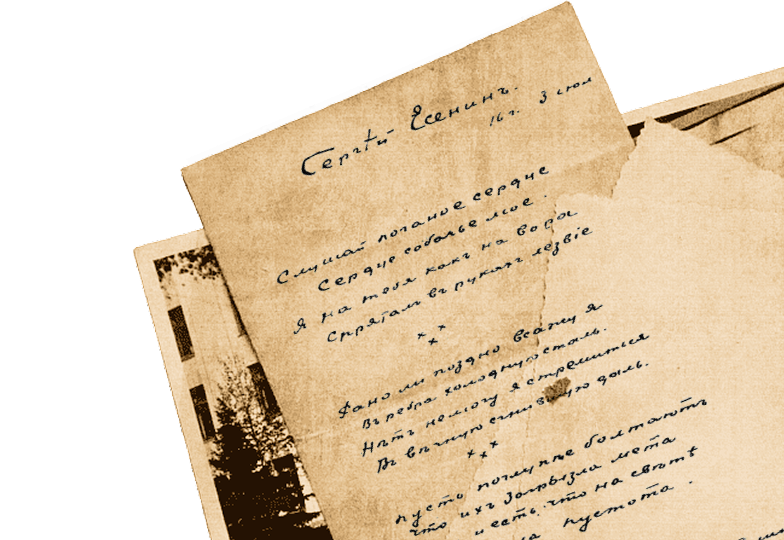 Сергѣй Есенинъ.
16 г. 3 июл
Слушай поганое сердце
Сердце собачье мое.
Я на тебя какъ на вора
Спряталъ въ рукахъ лезвіе
× × ×
Рано ли поздно всажу я
Въ ребра холодную сталь.
Нѣтъ немогу я стремиться
Въ вѣчную даль.
× × ×
Пусть поглупѣе болтаютъ
Что ихъ загрызла мета
и есть что на свѣтѣ
пустота.